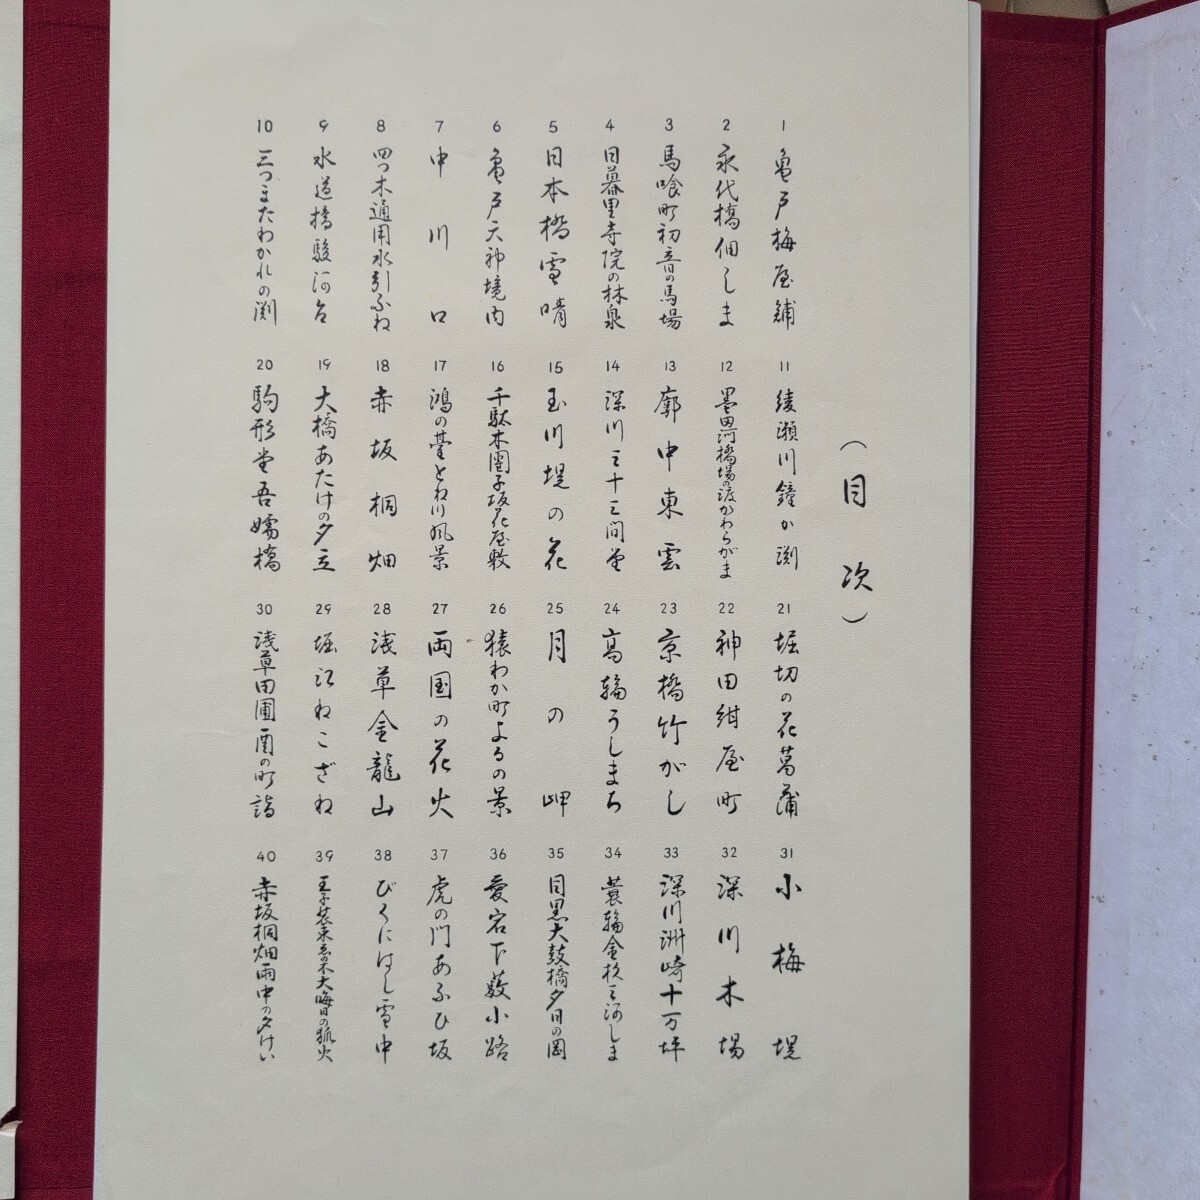 （目次）
1 亀戸梅屋舗
2 永代橋佃しま
3 馬喰町初音の馬場
4 日暮里寺院の林泉
5 日本橋雪晴
6 亀戸天神境内
7 中川口
8 四つ木通用水引ふね
9 水道橋駿河台
10 三つまたわかれの渕
11 綾瀬川鐘か渕
12 墨田河橋場の渡かわらがま
13 廓中東雲
14 深川三十三間堂
15 玉川堤の花
16 千駄木團子坂花屋敷
17 鴻の薹とね川風景
18 赤坂桐畑
19 大橋あたけの夕立
20 駒形堂吾嬬橋
21 堀切の花菖蒲
22 神田紺屋町
23 京橋竹がし
24 高輪うしまち
25 月の岬
26 猿わか町よるの景
27 両国の花火
28 浅草金龍山
29 堀江ねこざね
30 浅草田圃酉の町詣
31 小梅堤
32 深川木場
33 深川洲崎十万坪
34 蓑輪金杉三河しま
35 目黒太鼓橋夕日の岡
36 愛宕下薮小路
37 虎の門あふひ坂
38 びくにはし雪中
39 王子装束ゑの木大晦日の狐火
40 赤坂桐畑雨中の夕けい